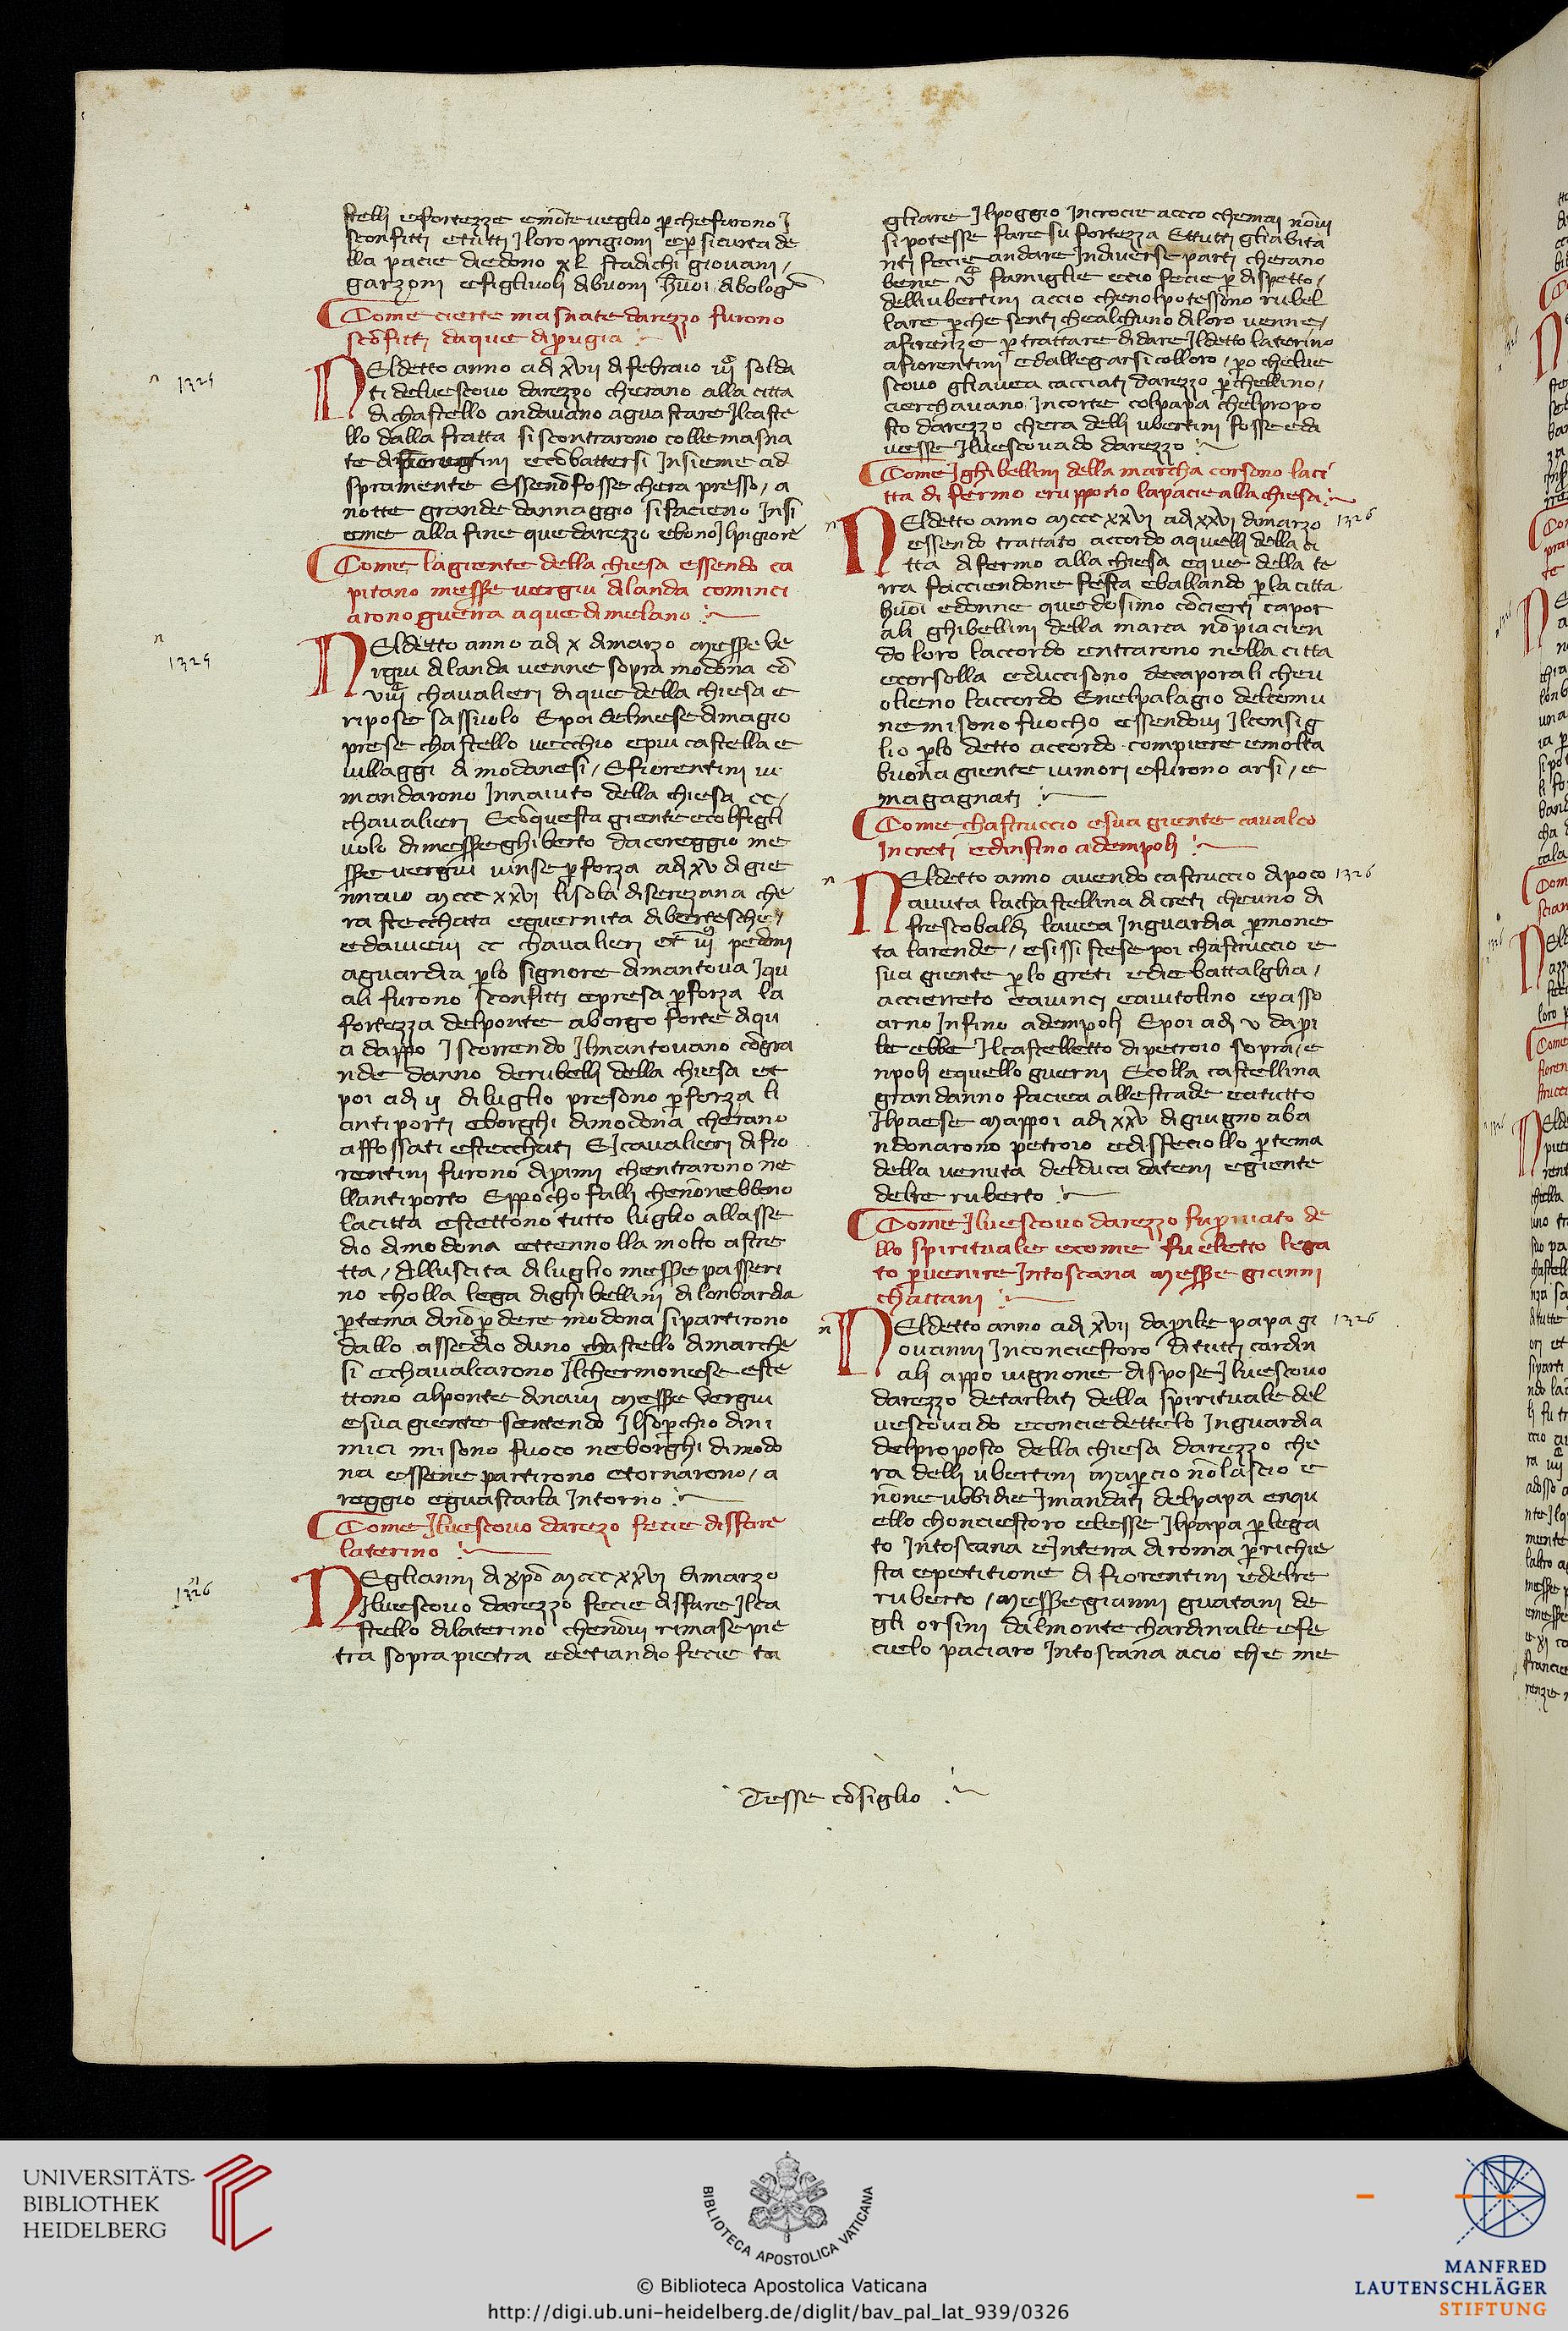 stellj efortezze emōte ueglio ꝑchefurono J
sconfitti etutti Jloro prigionj eꝑ sicurta de
lla pacie diedono xl stadichj giouanj /
garzonj efigliuolj dibuonj huoi dibologᵃ
Come cierte masnate darezzo furono
scōfittj daque diꝑugia
n 1325
NEldetto anno adj xvij difebraio iiijᶜ solda
ti deluescouo darezzo cherano alla citta
dichastello andauano aguastare Jlcaste
llo dalla fratta siscontrarono collemasna
te di ecōbattersi Jnsieme ad
spramente Essendo fosse chera presso / a
notte grande dannaggio sifacieno Jnsi
eme alla fine quedarezzo ebono Jlpigiore
Come lagiente della chiesa essendo ca
pitano messer uergiu dilanda cominci
arono guerra aquedimelano
n 1325
NEldetto anno adj x dimarzo messer ue
rgiu dilanda uenne sopra modona cō
viijᶜ chaualierj dique della chiesa e
ripose sassuolo Epoi delmese dimagio
prese chastello uecchio epiu castella e
uillaggi di modanesi / Efiorentinj ui
mandarono Jnnaiuto della chiesa cc /
chaualierj Ecōquesta giente ecolfigli
uolo dimesser ghiberto dacoreggio me
sser uergiu uinse ꝑforza adj xv di gie
nnaio mccc xxvj lisola diserezana che
ra stecchata eguernita dibertesche /
edauieuj cc chaualierj et iijᶜ pedonj
aguardia ꝑlo signore dimantoua Jqu
alj furono sconfittj epresa ꝑforza la
fortezza delponte aborgo forte diqu
a dappo J scorrendo Jlmantouano cōgra
nde danno derubellj della chiesa et
poi adj ij diluglio presono ꝑforza li
antiportj eborghi dimodona cherano
affossati estecchatj Ejcaualierj difio
rentinj furono diprimj chentrarono ne
llantiporto Eppocho fallj chenōnebbono
lacitta estettono tutto luglio allasse
dio dimodona ettennolla molto astre
tta / Alluscita diluglio messer passeri
no cholla lega dighibellinj dilonbardia
ꝑtema dinō ꝑdere modona sipartirono
dallo assedio duno chastello dimarche
si echaualcarono Jlchermonese este
ttono alponte dinauj Messer Vergiu
esua giente sentendo Jlsoꝑchio dini
mici misono fuoco neborghi dimodo
na essene partirono etornarono / a
reggio eguastarla Jntorno
Come Jluescouo darezo fecie disfare
laterino
n 1326
NEglianni di xpō Mccc xxvj dimarzo
Jluescouo darezzo fecie disfare Jlca
stello dilaterino chenōuj rimase pie
tra sopra pietra edetiandio fecie ta
gliare Jlpoggio Jncrocie accio chemaj nōuj
sipotesse fare su fortezza Ettuttj gliabita
ntj fecie andare Jndiuerse partj cherano
bene vᶜ famiglie ecio fecie ꝑ dispetto /
delliubertinj accio chenolpotessono rubel
lare ꝑche sentj chealchuno diloro uenne /
afirenze ꝑtrattare didare Jldetto laterino
afiorentinj edallegarsi colloro / ꝑo chelue
scouo gliauea cacciatj darezzo ꝑchellino /
cierchauano Jncorte colpapa chelpropo
sto darezzo chera dellj ubertinj fosse eda
uesse Jluescouado darezzo
Come Jghibellinj della marcha corsono laci
tta di fermo eruppono lapacie alla chiesa
n 1326
NEldetto anno Mccc xxvj adj xxvj dimarzo
essendo trattato accordo aquellj della ci
tta di fermo alla chiesa eque della te
rra facciendone festa eballando ꝑla citta
huoi edonne quedosimo cōciertj capor
alj ghibellinj della marca nōpiacien
do loro laccordo entrarono nella citta
ecorsolla educcisono decaporalj cheu
olieno laccordo Enelpalagio delcomu
nemisono fuocho essendouj Jlconsig
lio ꝑlo detto accordo compiere emolta
buona giente uimorj efurono arsi / e
magagnatj
Come chastruccio esua giente caualco
Jncretj edinfino adempolj
n 1326
NEldetto anno auendo castruccio dipoco
auuta lachastellina dicreti cheuno di
frescobaldj lauea Jnguardia ꝑmone
ta larende / esissi stese poi chastruccio e
sua giente ꝑlo gretj ediebattalglia /
accierreto eauincj eauitolino epasso
arno Jnfino adempolj Epoi adj v dapri
le ebbe Jlcastelletto dipetroio sopra / e
npolj equello guernj Ecolla castellina
grandanno faciea allestrade eatutto
Jlpaese Mappoi adj xxv digiugno aba
ndonarono petroio edisfeciollo ꝑtema
della uenuta delduca datenj egiente
delre ruberto
Come Jluescouo darezzo fu priuato de
llo spirituale ecome fu eletto lega
to ꝑuenire Jntoscana Messer gianni
chattani
n 1326
NEldetto anno adj xvij daprile papa gi
ouannj Jnconciestoro dituttj cardin
alj appo uignone dispose Jluescouo
darezzo detarlatj della spirituale del
uescouado econciedettelo Jnguardia
delproposto della chiesa darezzo che
ra dellj ubertinj Maꝑcio nōlascio e
nōne ubbidie Jmandatj delpapa enqu
ello chonciestoro elesse Jlpapa ꝑlega
to Jntoscana eJnterra diroma ꝑrichie
sta epetitione di fiorentinj edelre
ruberto / Messer giannj guatanj de
gli orsinj dalmonte chardinale efe
cielo paciaro Jntoscana acio che me
Tesse cōsiglio
UNIVERSITÄTS-
BIBLIOTHEK
HEIDELBERG
BIBLIOTECA APOSTOLICA VATICANA
© Biblioteca Apostolica Vaticana
http://digi.ub.uni-heidelberg.de/diglit/bav_pal_lat_939/0326
MANFRED
LAUTENSCHLÄGER
STIFTUNG